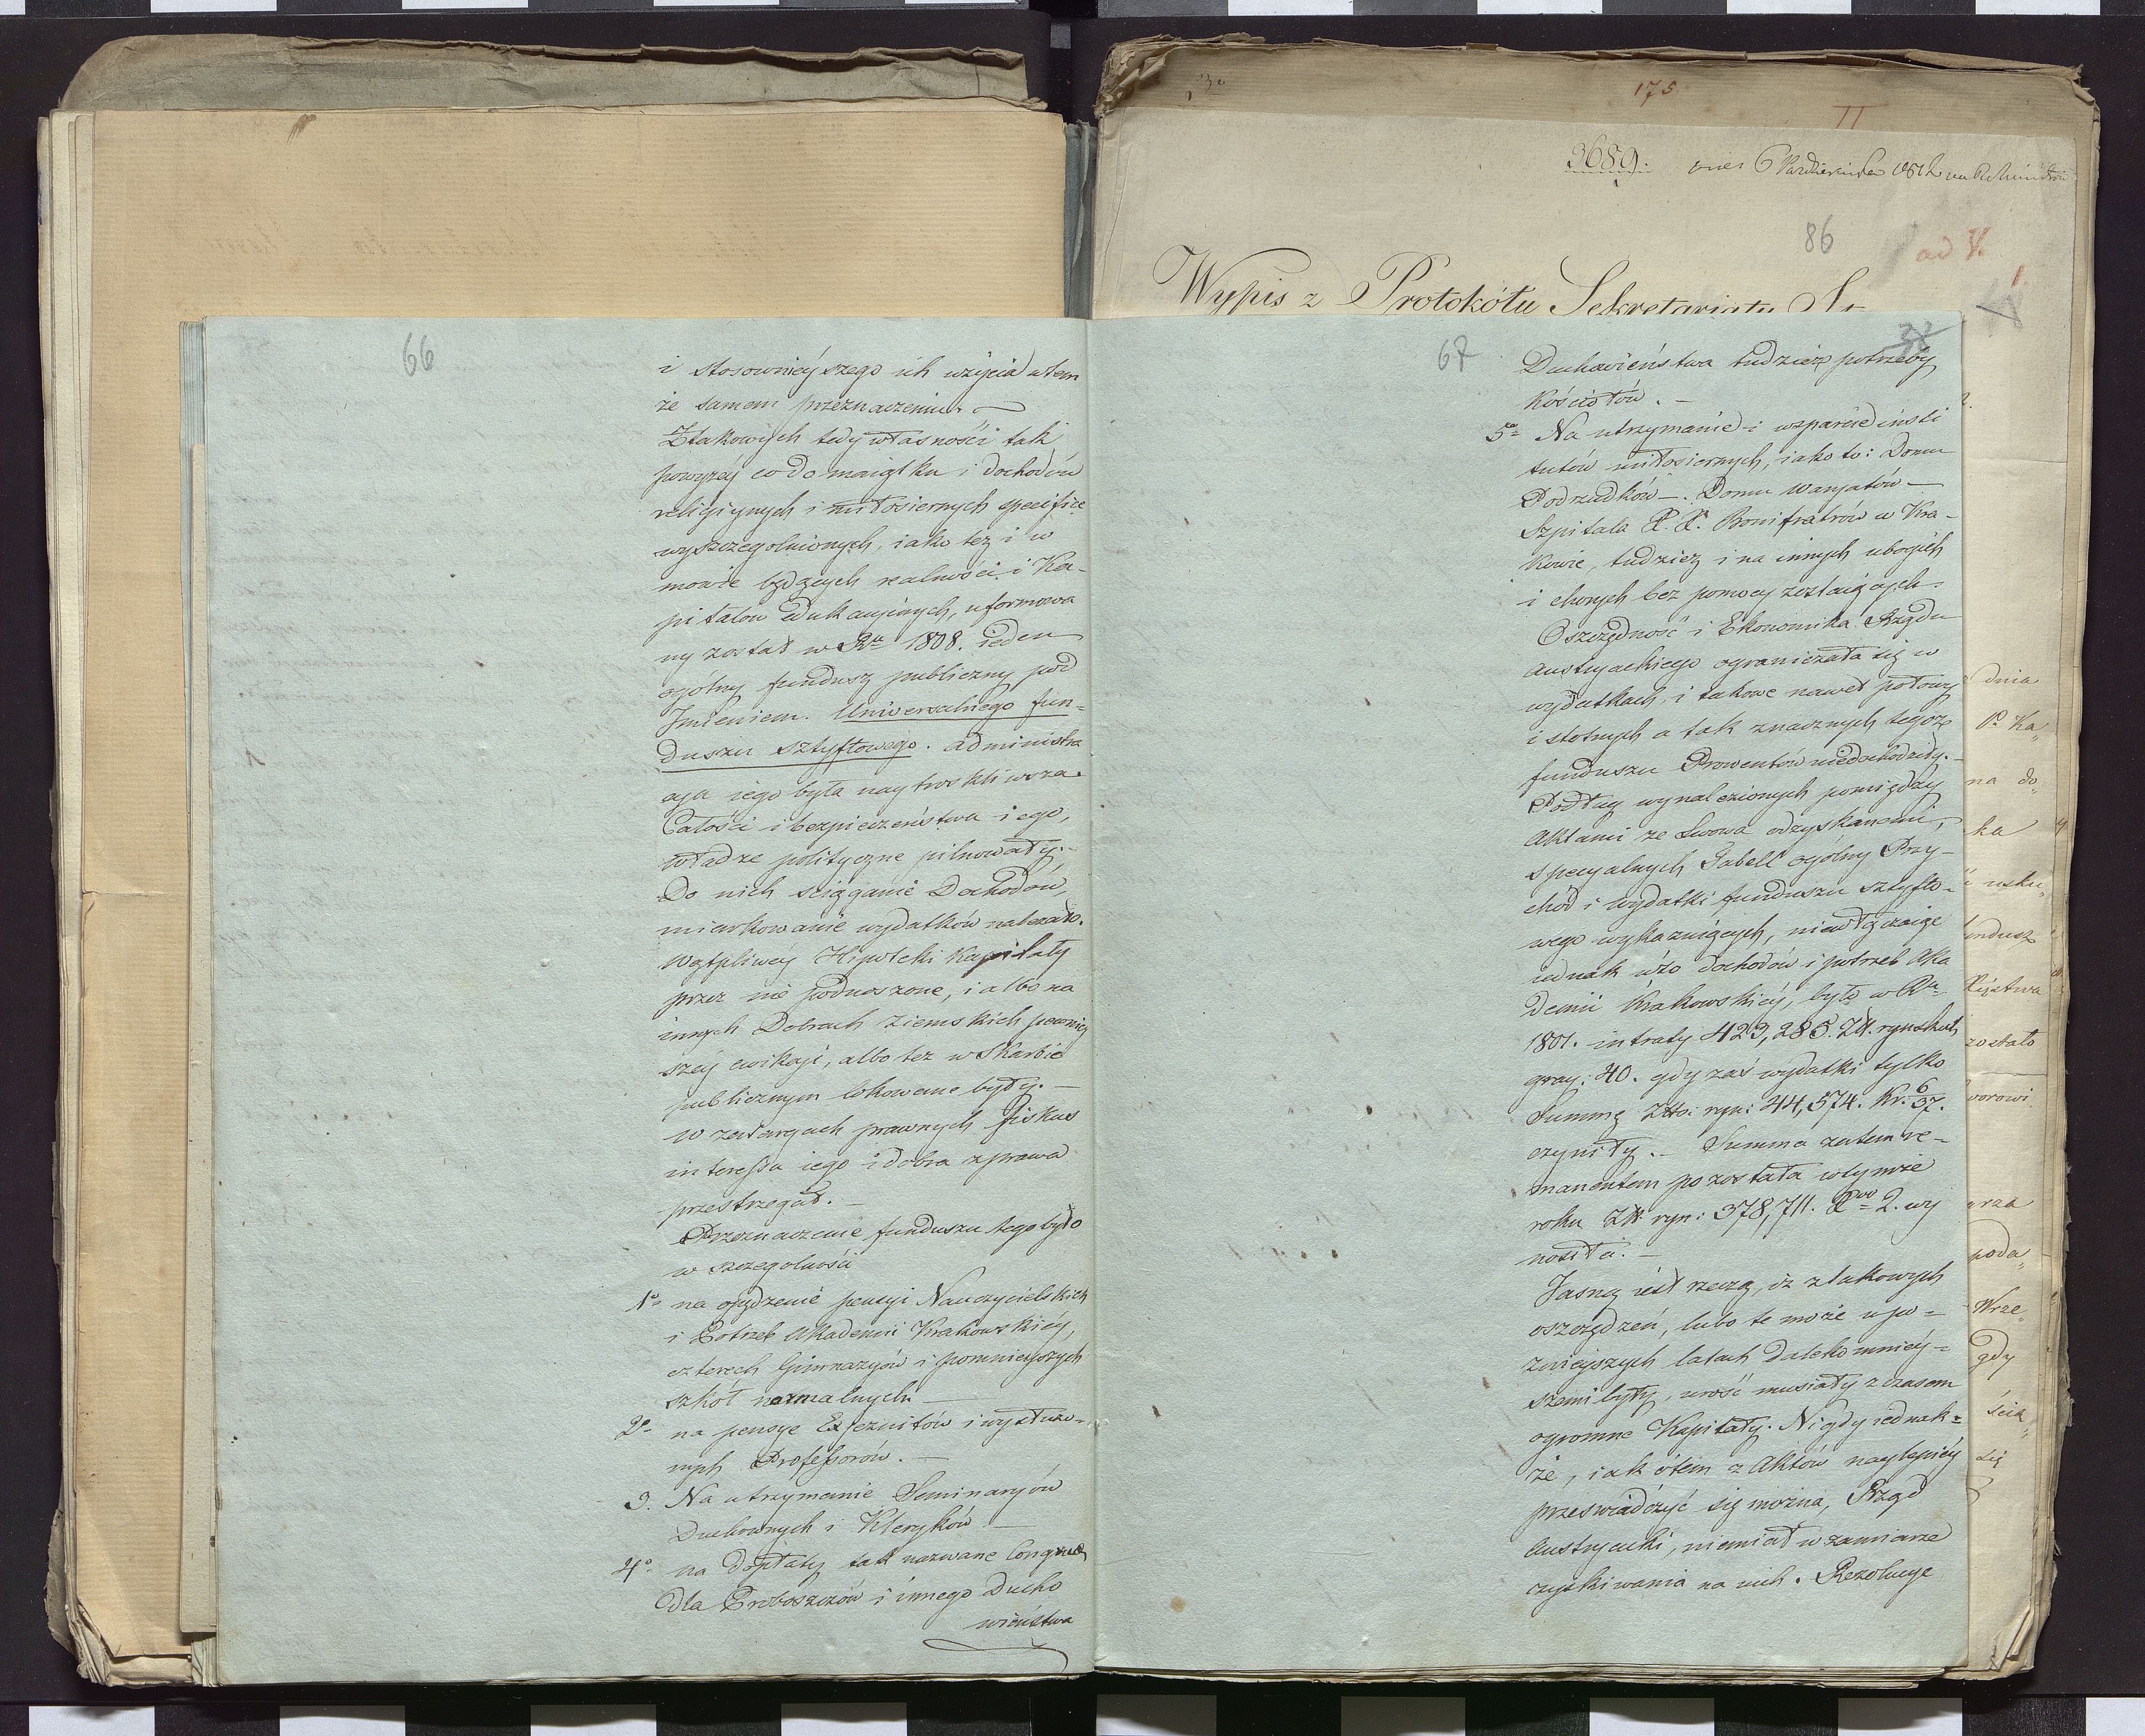 66
i stosownieyszego ich użycia w tem
że samem przeznaczeniu.
Z takowych tedy własności tak
powyżéy co do maiątku i dochodów
religiynych i miłosiernych specifice
wyszczegolnionych, iako też i w
mowie będących realności i Ka-
pitałow Edukacyinych, uformowa
ny został w Ru 1808. ieden
ogólny fundusz publiczny pod
Imieniem. Uniwersalnego fun=
duszu sztyftowego. administra
cya iego była naytroskliwsza.
Całości i bezpieczeństwa iego,
władze polityczne pilnowały.-
Do nich sciąganie Dochodów,
miarkowanie wydatków należało.
Wątpliwéy Hipoteki Kapitały
przez nie podnoszone, i albo na
innych Dobrach Ziemskich pewniey
széy ewikcyi, albo też w Skarbie
publicznym lokowane były. -
W zatargach prawnych fiskus
interessu iego i dobra z prawa
przestrzegał. -
Przeznaczenie funduszu tego było
w szczegolności
1o na opędzenie pensyi Nauczycielskich
i Potrzeb Akademii Krakowskiéy,
czterech Gimnazyów i pomnieyszych
szkół normalnych -
2o na pensye Exjezuitów i wysłużo=
nych Professorów. -
3. Na utrzymanie Seminaryów
Duchownych i Kleryków -
4o na dopłaty tak nazwane Congrua
dla Proboszczów i innego Ducho
wieństwa
175
II
3689.
86
ad V.
1
Wypis z Protokółu Sekretariatu
67
Duchowieństwa tudzież potrzeby
Kościołów. -
5o Na utrzymanie i wsparcie insti
tutów miłosiernych, iako to: Domu
Podrzudków -. Domu Waryatów -
Szpitala X. X. Bonifratrów w Kra-
kowie, tudzież i na innych ubogich
i chorych bez pomocy zostaiących.
Oszczędność i Ekonomika Rządu
Austryackiego ograniczała się w
wydatkach, i takowe nawet połowy
istotnych a tak znacznych tegoż
funduszu Prowentów niedochodziły. -
Podług wynalezionych pomiędzy
Aktami ze Lwowa odzyskanemi,
specyalnych Tabell ogólny Przy-
chód i wydatki funduszu sztyfto-
wego wykazuiących, niewłączaiąc
iednak wto dochodów i potrzeb Aka
demii Krakowskiéy, było w Ru
1801. intraty 423,285. Zł. ryńskich
gray: 40. gdy zaś wydatki tylko
Summę Złło: ryn: 44,574. Kr. 6/37.
czyniły. - Summa zatem re-
manentem pozostała w tymże
roku Zł ryn: 378,711. 2. wy
nosiła. -
Jasną iest rzeczą, iż z takowych
oszczędzeń, lubo te może w po=
znieyszych latach daleko mniéy=
szemi były, urość musiały z czasem
ogromne Kapitały. Nigdy iednak=
że, iak ótém z Aktów naylepiéy
przeswiadczyć się można, Rząd
Austryacki, niemiał w zamiarze
zyskiwania na nich. Rezolucye
dnia
P. Ka„
na do„
ka
usku„
fundusz
Xięstwa
zostało
worowi
poda„
Wrze„
gdy
ścia„
się